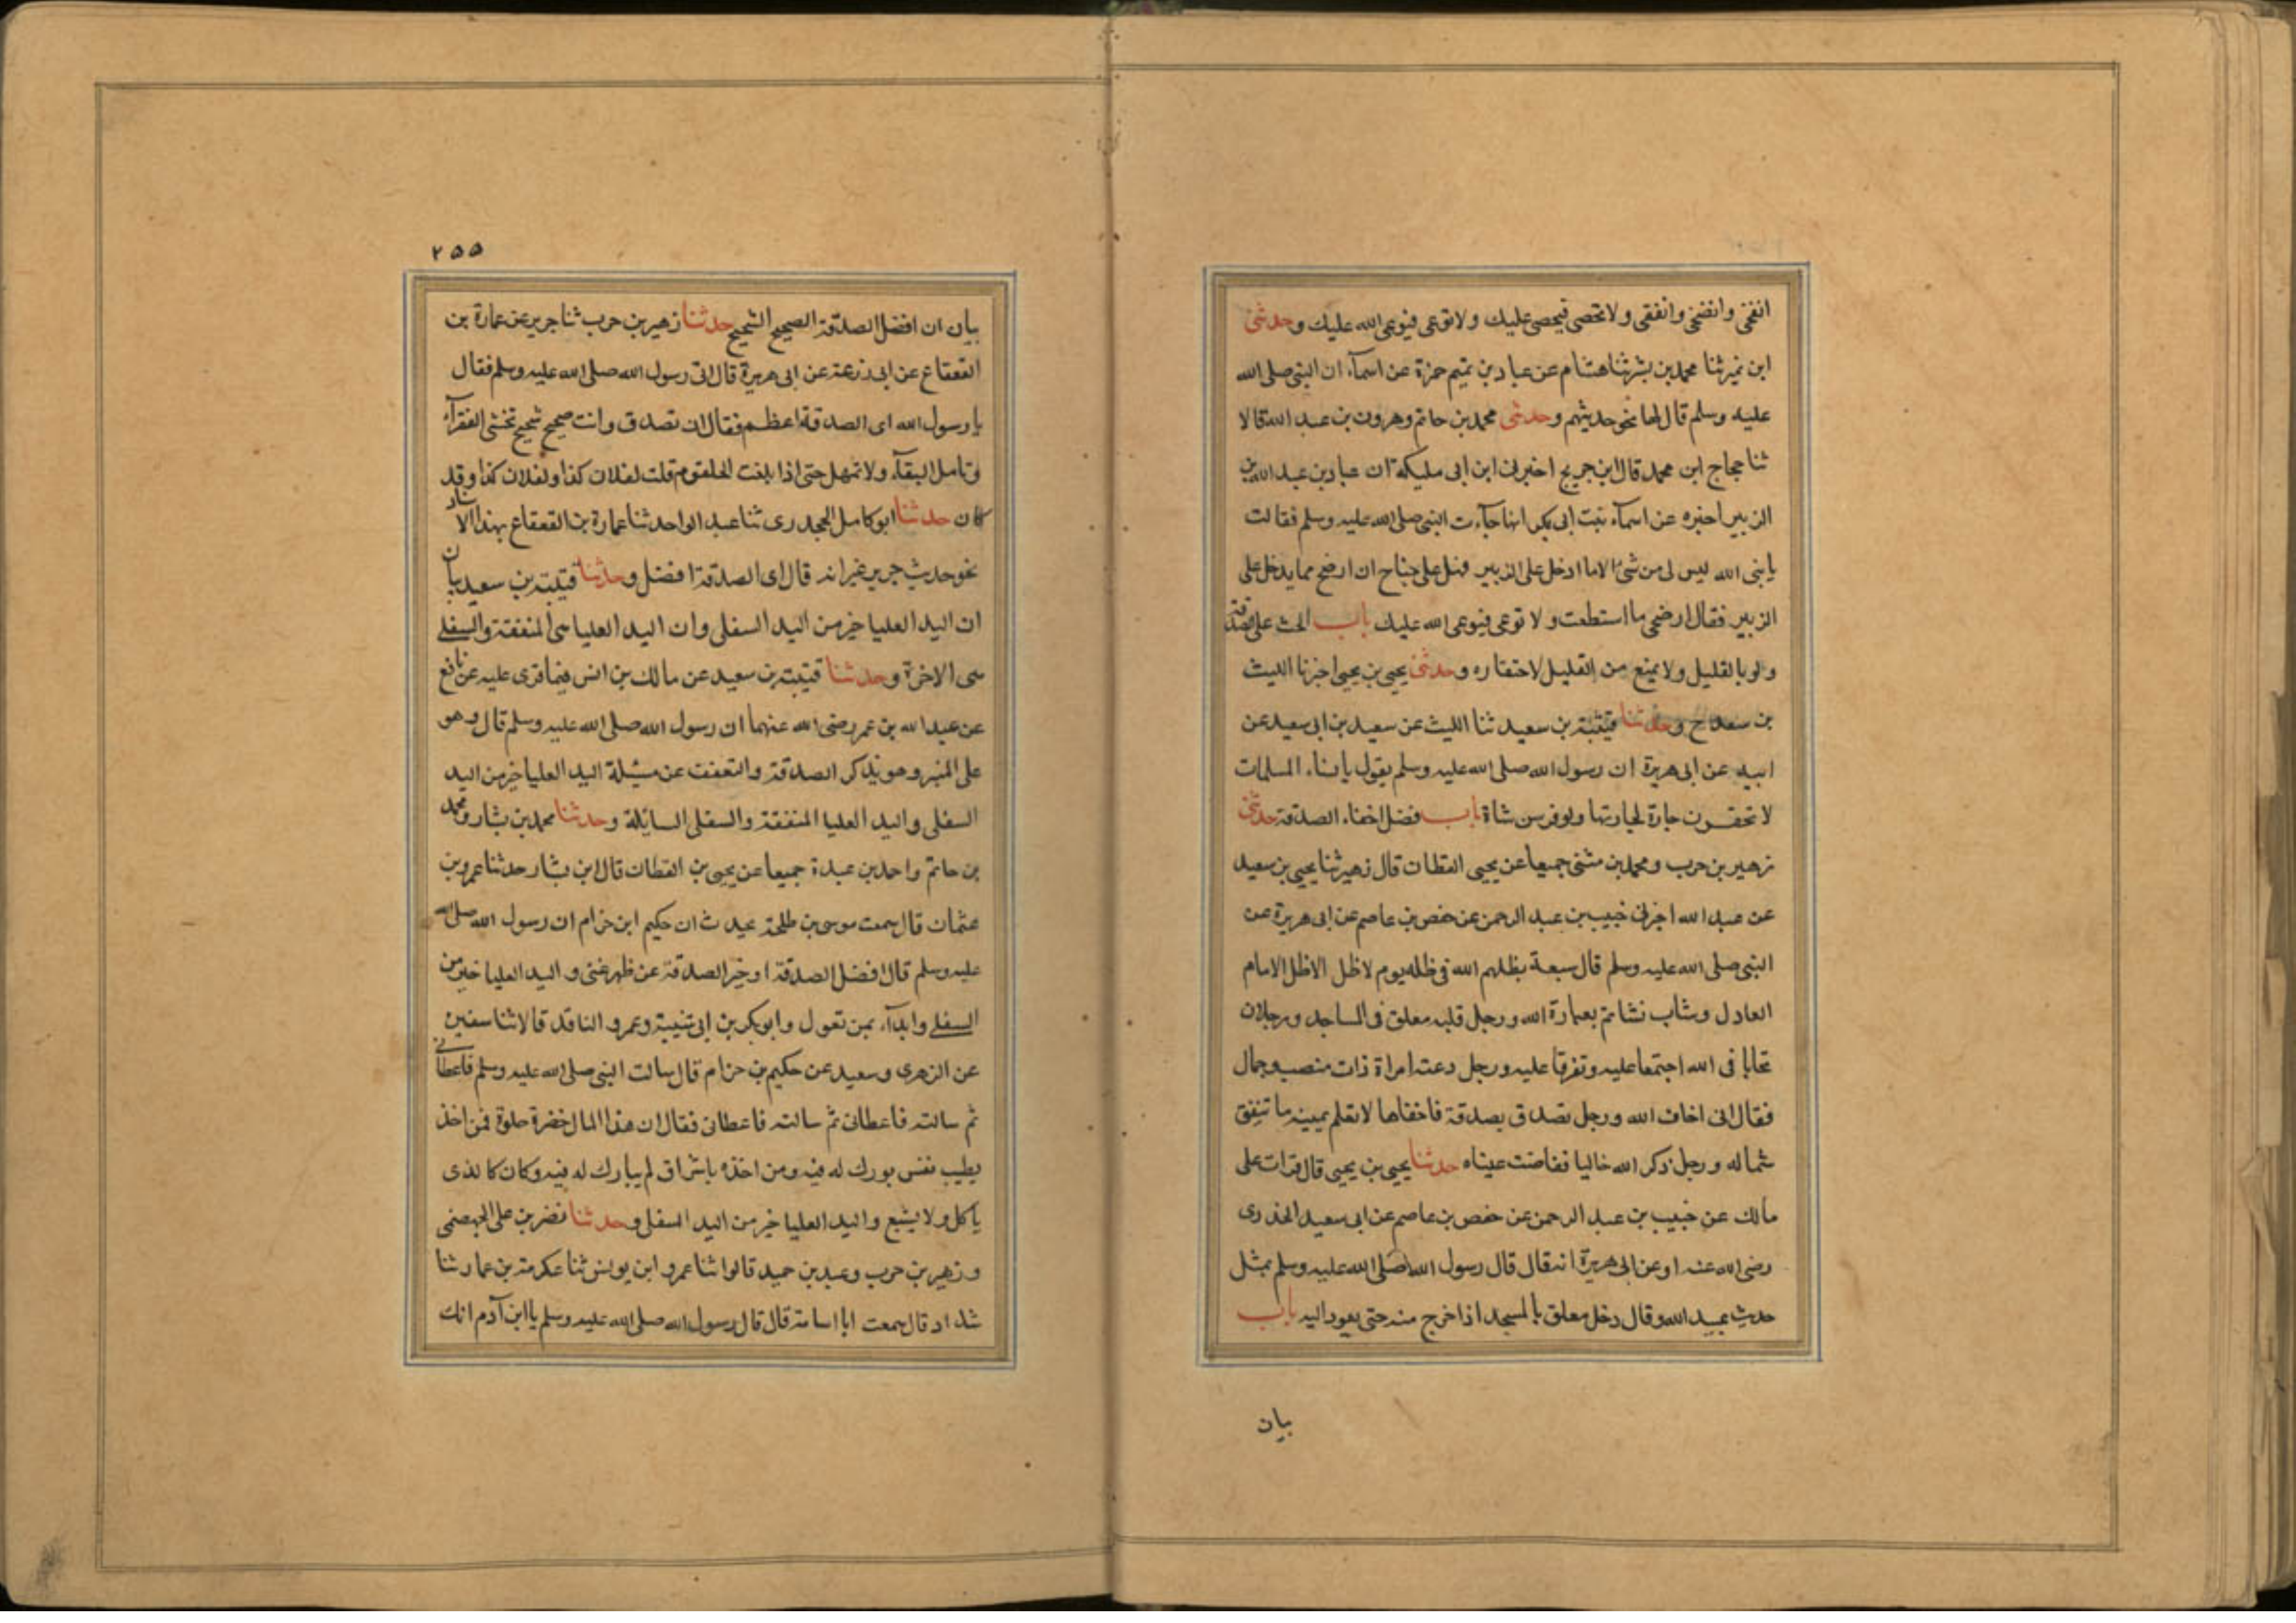 انفقى وانضحى وانفقى ولا تحصى فيحصى عليك ولا توعى فيوعى الله عليك وحدثنى
ابن نمير ثنا محمد بن بشر ثنا هشام عن عباد بن تميم حمزة عن اسمآء ان النبى صلى الله
عليه وسلم قال لها نحو حديثهم وحدثنى محمد بن حاتم وهرون بن عبد الله قالا
ثنا حجاج ابن محمد قال ابن جريج اخبرنى ابن ابى مليكة ان عباد بن عبد الله بن
الزبير اخبره عن اسمآء بنت ابى بكر انها جآءت النبى صلى الله عليه وسلم فقالت
يا نبى الله ليس لى من شئ الا ما ادخل على الزبير فهل على جناح ان ارضخ مما يدخل على
الزبير فقال ارضخى ما استطعت ولا توعى فيوعى الله عليك باب الحث على الصدقة
ولو بالقليل ولا يمنع من القليل لاحتقاره وحدثنى يحيى بن يحيى اخبرنا الليث
بن سعد ح وحدثنا قتيبة بن سعيد ثنا الليث عن سعيد بن ابى سعيد عن
ابيه عن ابى هريرة ان رسول الله صلى الله عليه وسلم يقول يا نساء المسلمات
لا تحقرن جارة لجارتها ولو فرسن شاة باب فضل اخفاء الصدقة حدثنى
زهير بن حرب ومحمد بن مثنى جميعا عن يحيى القطان قال زهير ثنا يحيى بن سعيد
عن عبد الله اخبرنى خبيب بن عبد الرحمن عن حفص بن عاصم عن ابى هريرة عن
النبى صلى الله عليه وسلم قال سبعة يظلهم الله فى ظله يوم لا ظل الا ظل الامام
العادل وشاب نشا ثم بعبادة الله ورجل قلبه معلق فى المساجد ورجلان
تحابا فى الله اجتمعا عليه وتفرقا عليه ورجل دعته امراة ذات منصب وجمال
فقال انى اخاف الله ورجل تصدق بصدقة فاخفاها لا تعلم يمينه ما تنفق
شماله ورجل ذكر الله خاليا ففاضت عيناه حدثنا يحيى بن يحيى قال قرات على
مالك عن خبيب بن عبد الرحمن عن حفص بن عاصم عن ابى سعيد الخدرى
رضى الله عنه او عن ابى هريرة انه قال قال رسول الله صلى الله عليه وسلم بمثل
حديث عبيد الله وقال رجل معلق بالمسجد اذا خرج منه حتى يعود اليه باب
بيان
٢٥٥
بيان ان افضل الصدقة الصحيح الشحيح حدثنا زهير بن حرب ثنا جرير عن عمارة بن
القعقاع عن ابى زرعة عن ابى هريرة قال اتى رسول الله صلى الله عليه وسلم فقال
يا رسول الله اى الصدقة اعظم فقال ان تصدق وانت صحيح شحيح تخشى الفقرآء
وتامل البقآء ولا تمهل حتى اذا بلغت الحلقوم قلت لفلان كذا ولفلان كذا وقد
كان حدثنا ابو كامل الجحدرى ثنا عبد الواحد ثنا عمارة بن القعقاع بهذا الاسناد
نحو حديث جرير غير انه قال اى الصدقة افضل وحدثنا قتيبة بن سعيد بيان
ان اليد العليا خير من اليد السفلى وان اليد العليا هى المنفقة والسفلى
هى الاخرة وحدثنا قتيبة بن سعيد عن مالك بن انس فيما قرى عليه عن نافع
عن عبد الله بن عمر رضى الله عنهما ان رسول الله صلى الله عليه وسلم قال وهو
على المنبر وهو يذكر الصدقة والتعفف عن مسئلة اليد العليا خير من اليد
السفلى واليد العليا المنفقة والسفلى السايلة وحدثنا محمد بن بشار ومحمد
بن حاتم واحمد بن عبدة جميعا عن يحيى بن القطان قال ابن بشار حدثنا عمرو بن
عثمان قال سمعت موسى بن طلحة يحدث ان حكيم ابن حزام ان رسول الله صلى الله
عليه وسلم قال افضل الصدقة او خير الصدقة عن ظهر غنى واليد العليا خير من
السفلى وابدآء بمن تعول وابو بكر بن ابى شيبة وعمرو الناقد قالا ثنا سفين
عن الزهرى وسعيد عن حكيم بن حزام قال سالت النبى صلى الله عليه وسلم فاعطانى
ثم سالته فاعطانى ثم سالته فاعطانى فقال ان هذا المال خضرة حلوة فمن اخذ
بطيب نفس بورك له فيه ومن اخذه باشراق لم يبارك له فيه وكان كالذى
ياكل ولا يشبع واليد العليا خير من اليد السفلى وحدثنا نضر بن على الجهضمى
وزهير بن حرب وعبد بن حميد قالوا ثنا عمرو ابن يونس ثنا عكرمة بن عمار ثنا
شداد قال سمعت ابا اسامة قال قال رسول الله صلى الله عليه وسلم يا ابن آدم انك